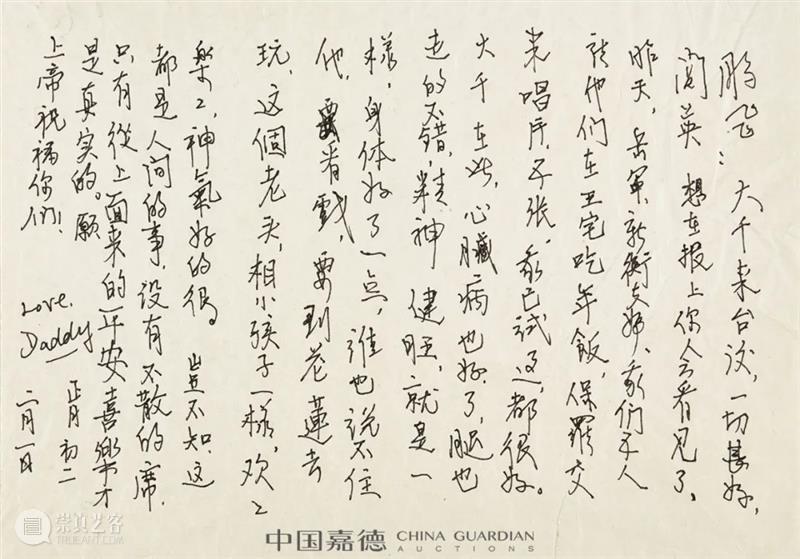 鹏飞: 大千来台後,一切甚好,
閭英 想在报上你会看见了。
昨天,岳军、新衡夫婦、我们人
他们在王宅吃年飯,保羅交
来唱片张,我已试过,都很好。
大千在此,心臟病也好了,腿也
走的不错,精神健旺,就是一
樣,身体好了一点,誰也说不住
他,要看戲,要到花蓮去
玩,这個老头,相小孩子一樣,欢々
樂々,神氣好的很。豈不知,这
都是人间的事,没有不散的席.
只有從上面来的平安喜樂才
是真实的。願
上帝祝福你们!
Love.
Daddy
正月初二
二月一日
崇真艺客
中国嘉德 CHINA GUARDIAN
AUCTIONS